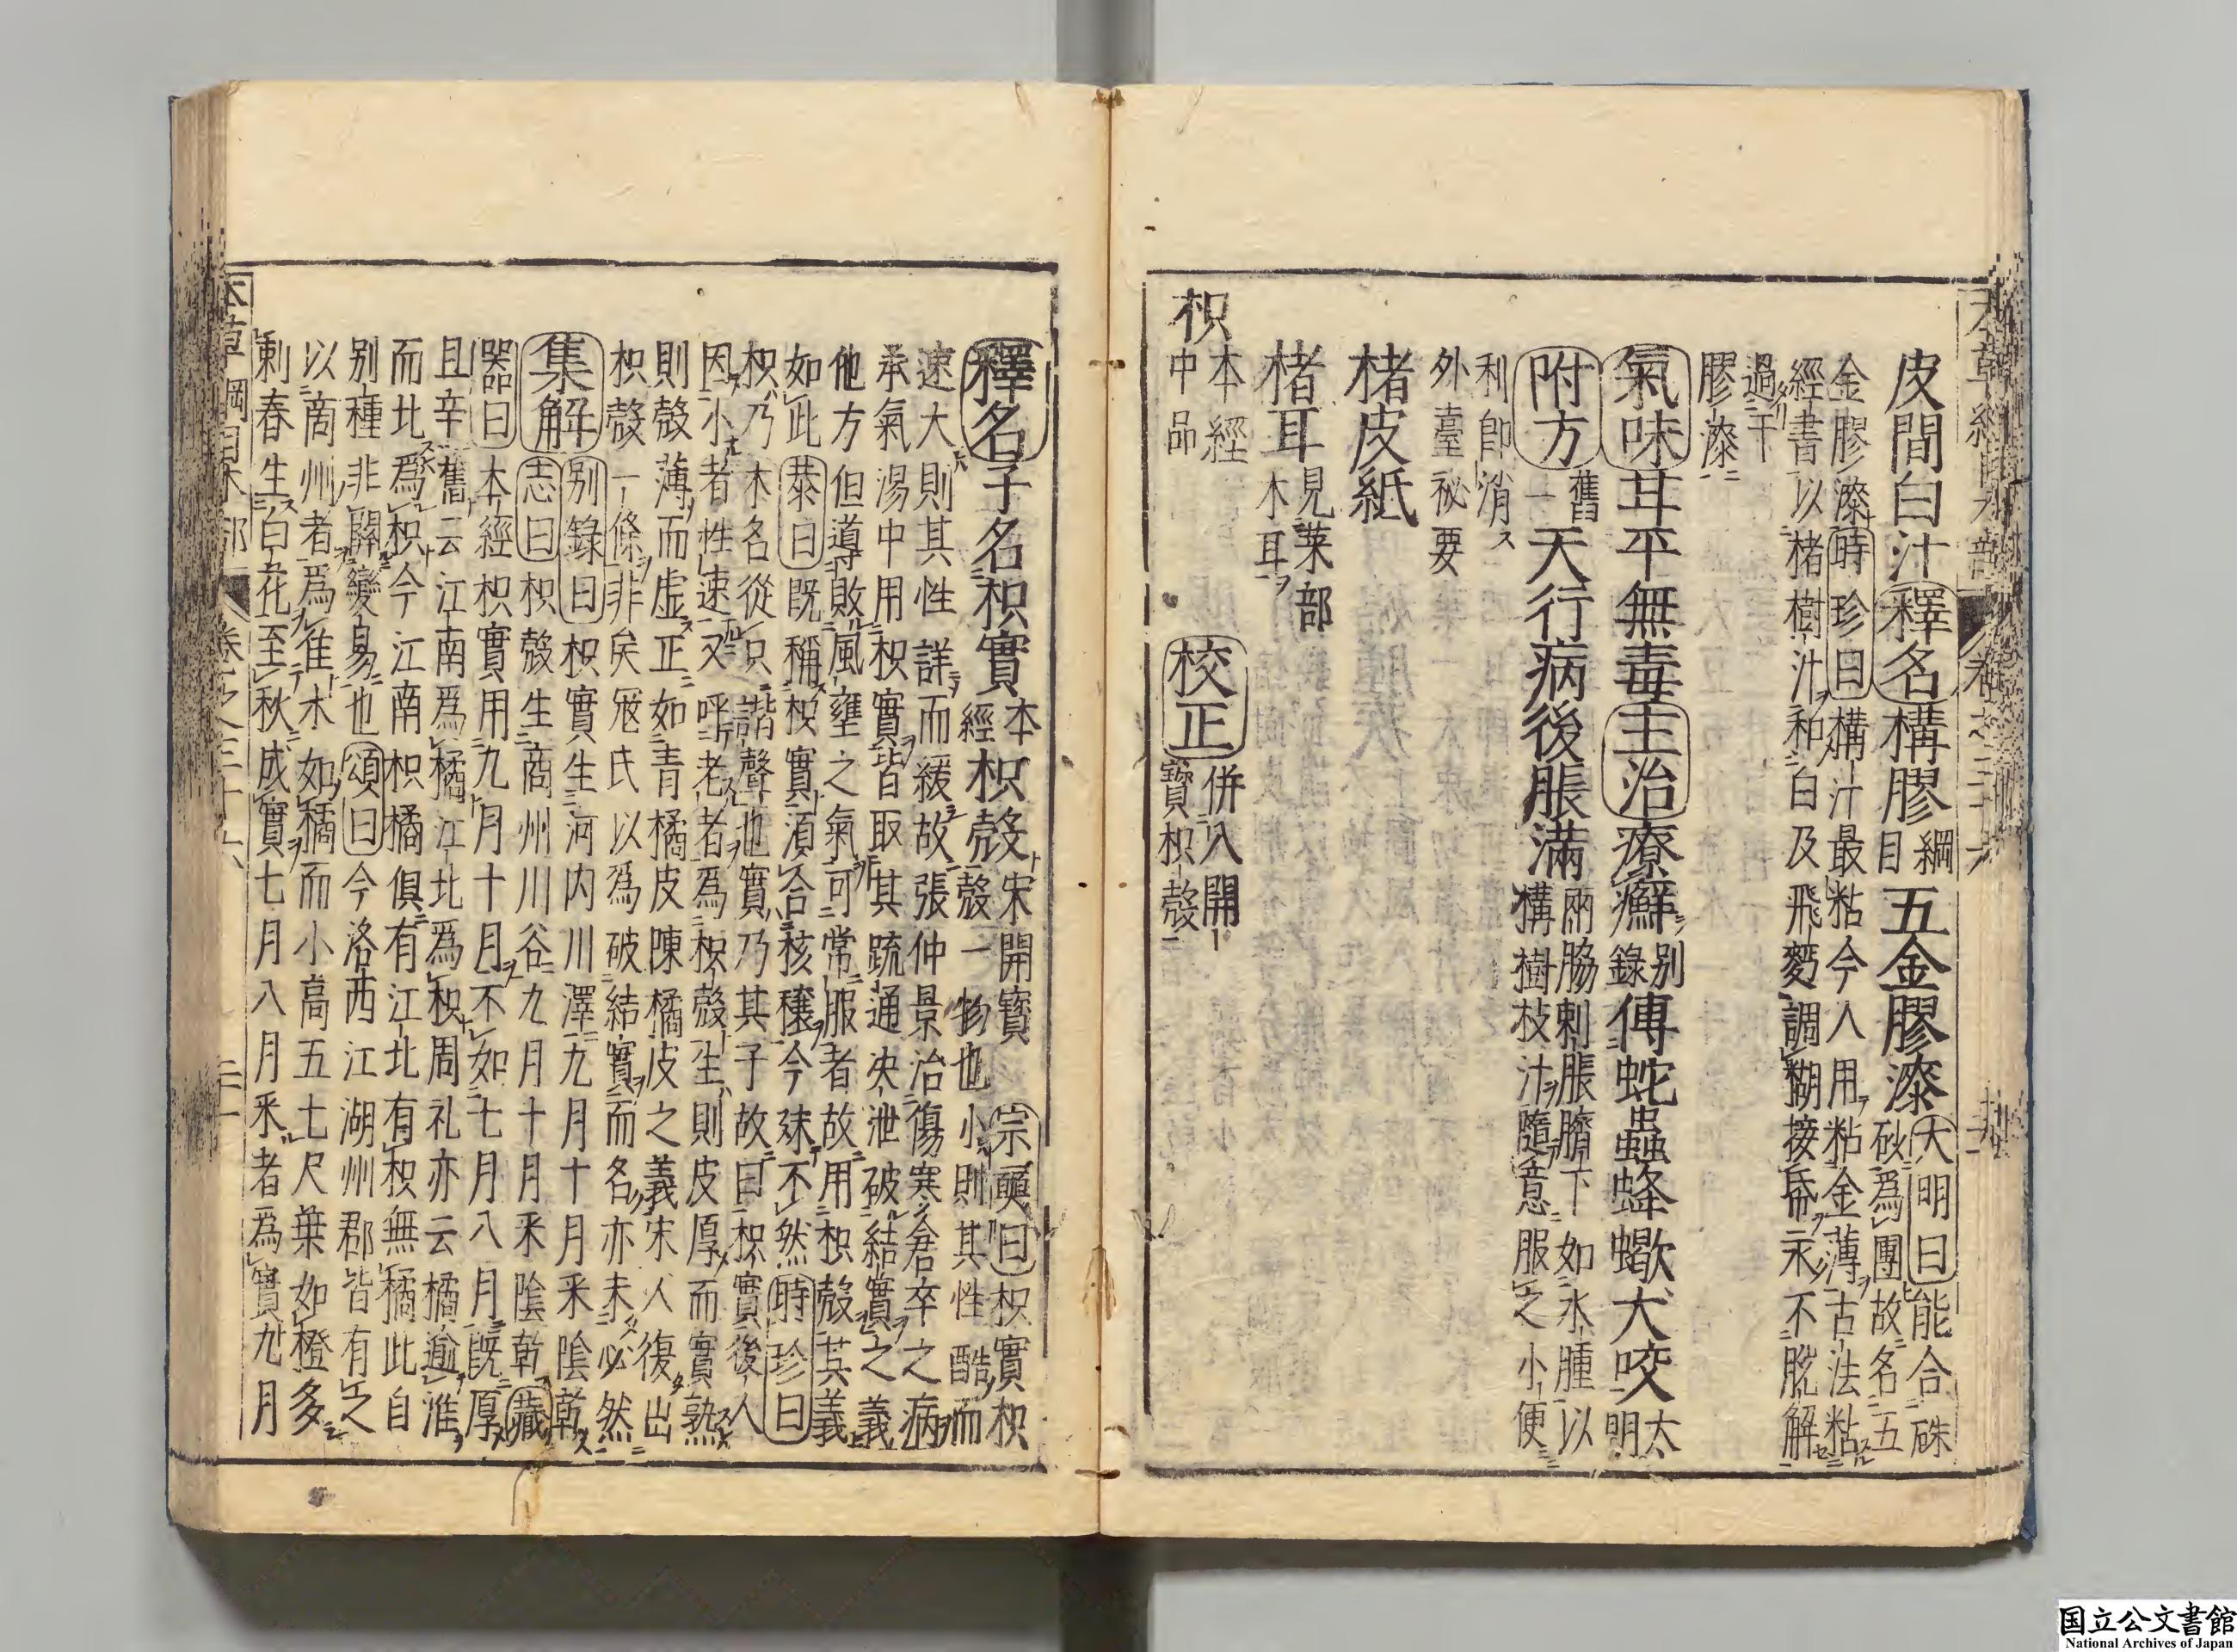 皮間白汁釋名構膠綱目五金膠漆大明曰能合硃
砂爲團故名五
金膠漆時珍曰構汁最粘今人用粘金薄古法粘
經書以楮樹汁和白及飛麪調糊接帋永不脫解
過于
膠漆
氣味甘平無毒主治療癬別錄傅蛇蟲蜂蠍犬咬大明
附方舊一天行病後脹滿兩脇刺脹臍下如水腫以
構樹枝汁隨意服之小便
利即消
外臺祕要
楮皮紙
楮耳見菜部
木耳
枳本經
中品
校正併入開
寶枳殼
釋名子名枳實本經枳殼宋開寶宗奭曰枳實枳
殼一物也小則其性酷而
速大則其性詳而緩故張仲景治傷寒倉卒之病
承氣湯中用枳實皆取其疏通决泄破結實之義
他方但導敗風壅之氣可常服者故用枳殼其義
如此恭曰既稱枳實須合核穰今殊不然時珍曰
枳乃木名從只諧聲也實乃其子故曰枳實後人
因小者性速又呼老者爲枳殼生則皮厚而實熟
則殼薄而虛正如青橘皮陳橘皮之義宋人復出
枳殼一條非矣寇氏以爲破結實而名亦未必然
集解別錄曰枳實生河内川澤九月十月采陰乾
志曰枳殼生商州川谷九月十月采陰乾藏
器曰本經枳實用九月十月不如七月八月既厚
且辛舊云江南爲橘江北爲枳周礼亦云橘逾淮
而北爲枳今江南枳橘俱有江北有枳無橘此自
別種非關變易也頌曰今洛西江湖州郡皆有之
以商州者爲佳木如橘而小高五七尺葉如橙多
刺春生白花至秋成實七月八月采者爲實九月
本草綱目木部 卷之三十六 二十一
国立公文書館
National Archives of Japan